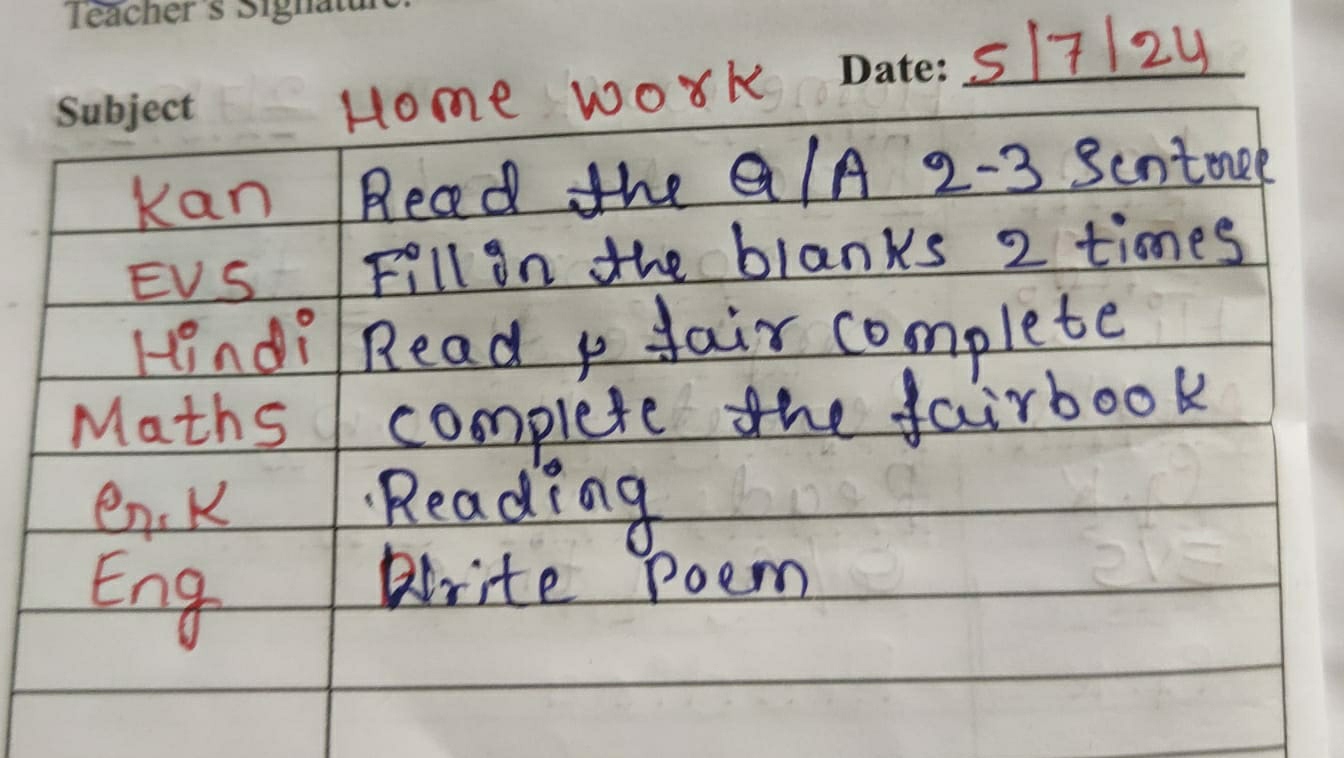 Teacher's Signature:
Subject Home work Date: 5/7/24
Kan Read the Q/A 2-3 Sentence
EVS Fill in the blanks 2 times
Hindi Read & fair complete
Maths complete the fairbook
G.K Reading
Eng Write Poem